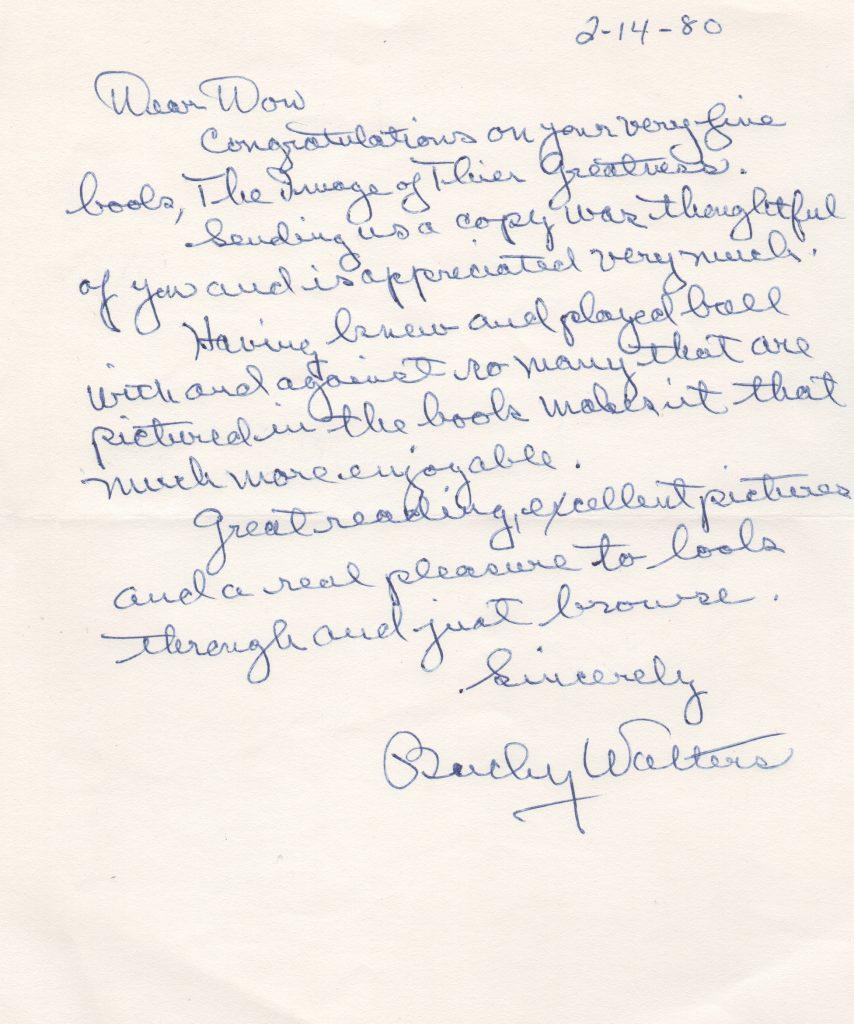 2-14-80
Dear Don
Congratulations on your very fine
book, The Image of Thier Greatness.
Sending us a copy was thoughtful
of you and is appreciated very much.
Having knew and played ball
with and against so many that are
pictured in the book makes it that
much more enjoyable.
Great reading, excellent pictures
and a real pleasure to look
through and just browse.
Sincerely
Bucky Walters